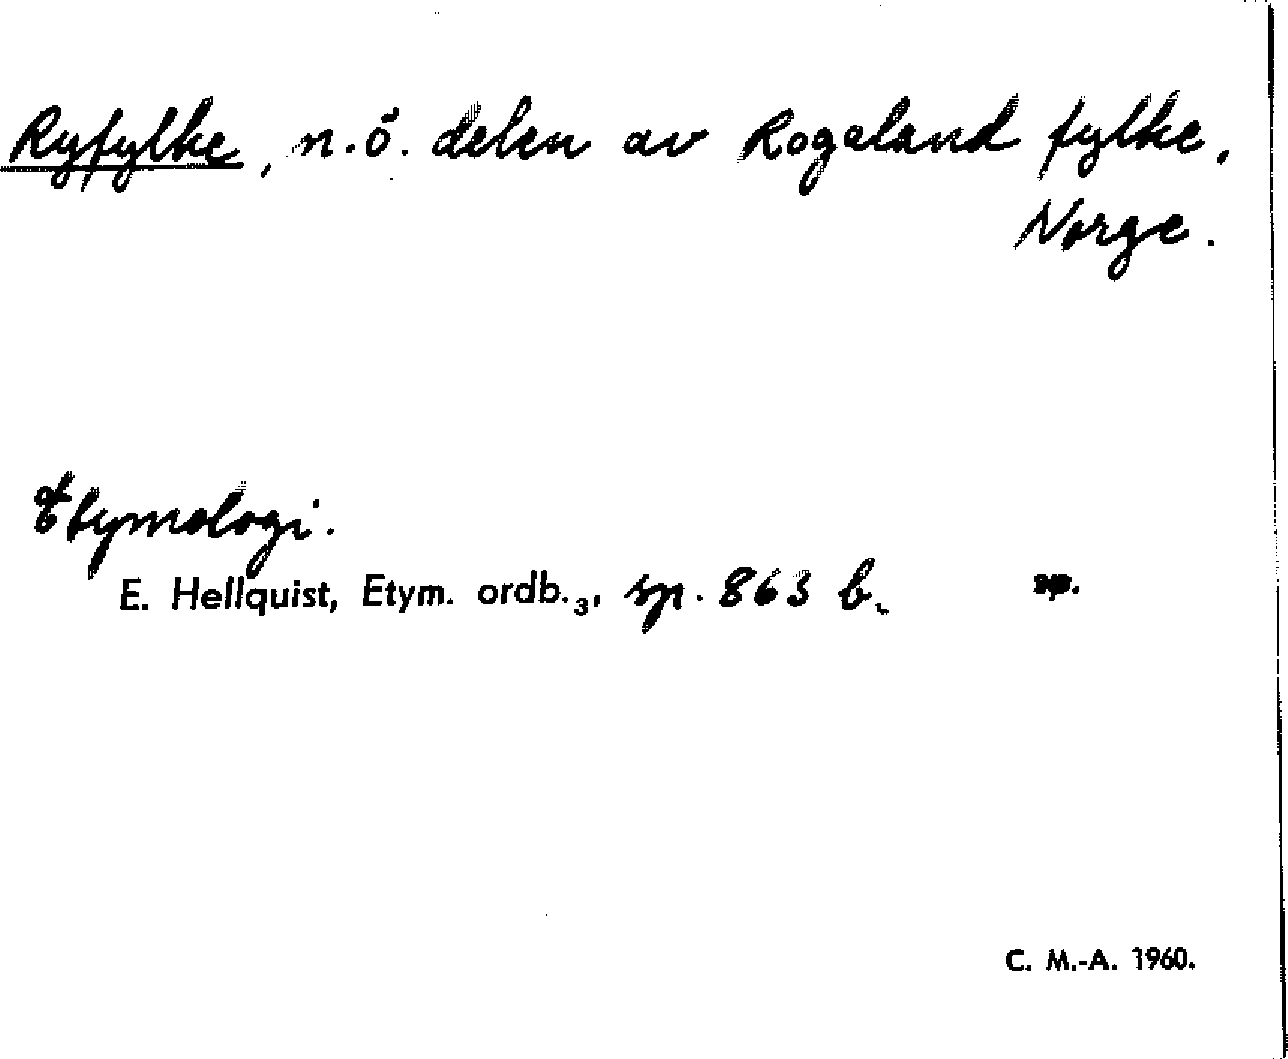 Ryfylke, n.ö. delen av Rogaland fylke,
Norge.
Etymologi.
E. Hellquist, Etym. ordb.₃, sp. 863 b. sp.
C. M.-A. 1960.